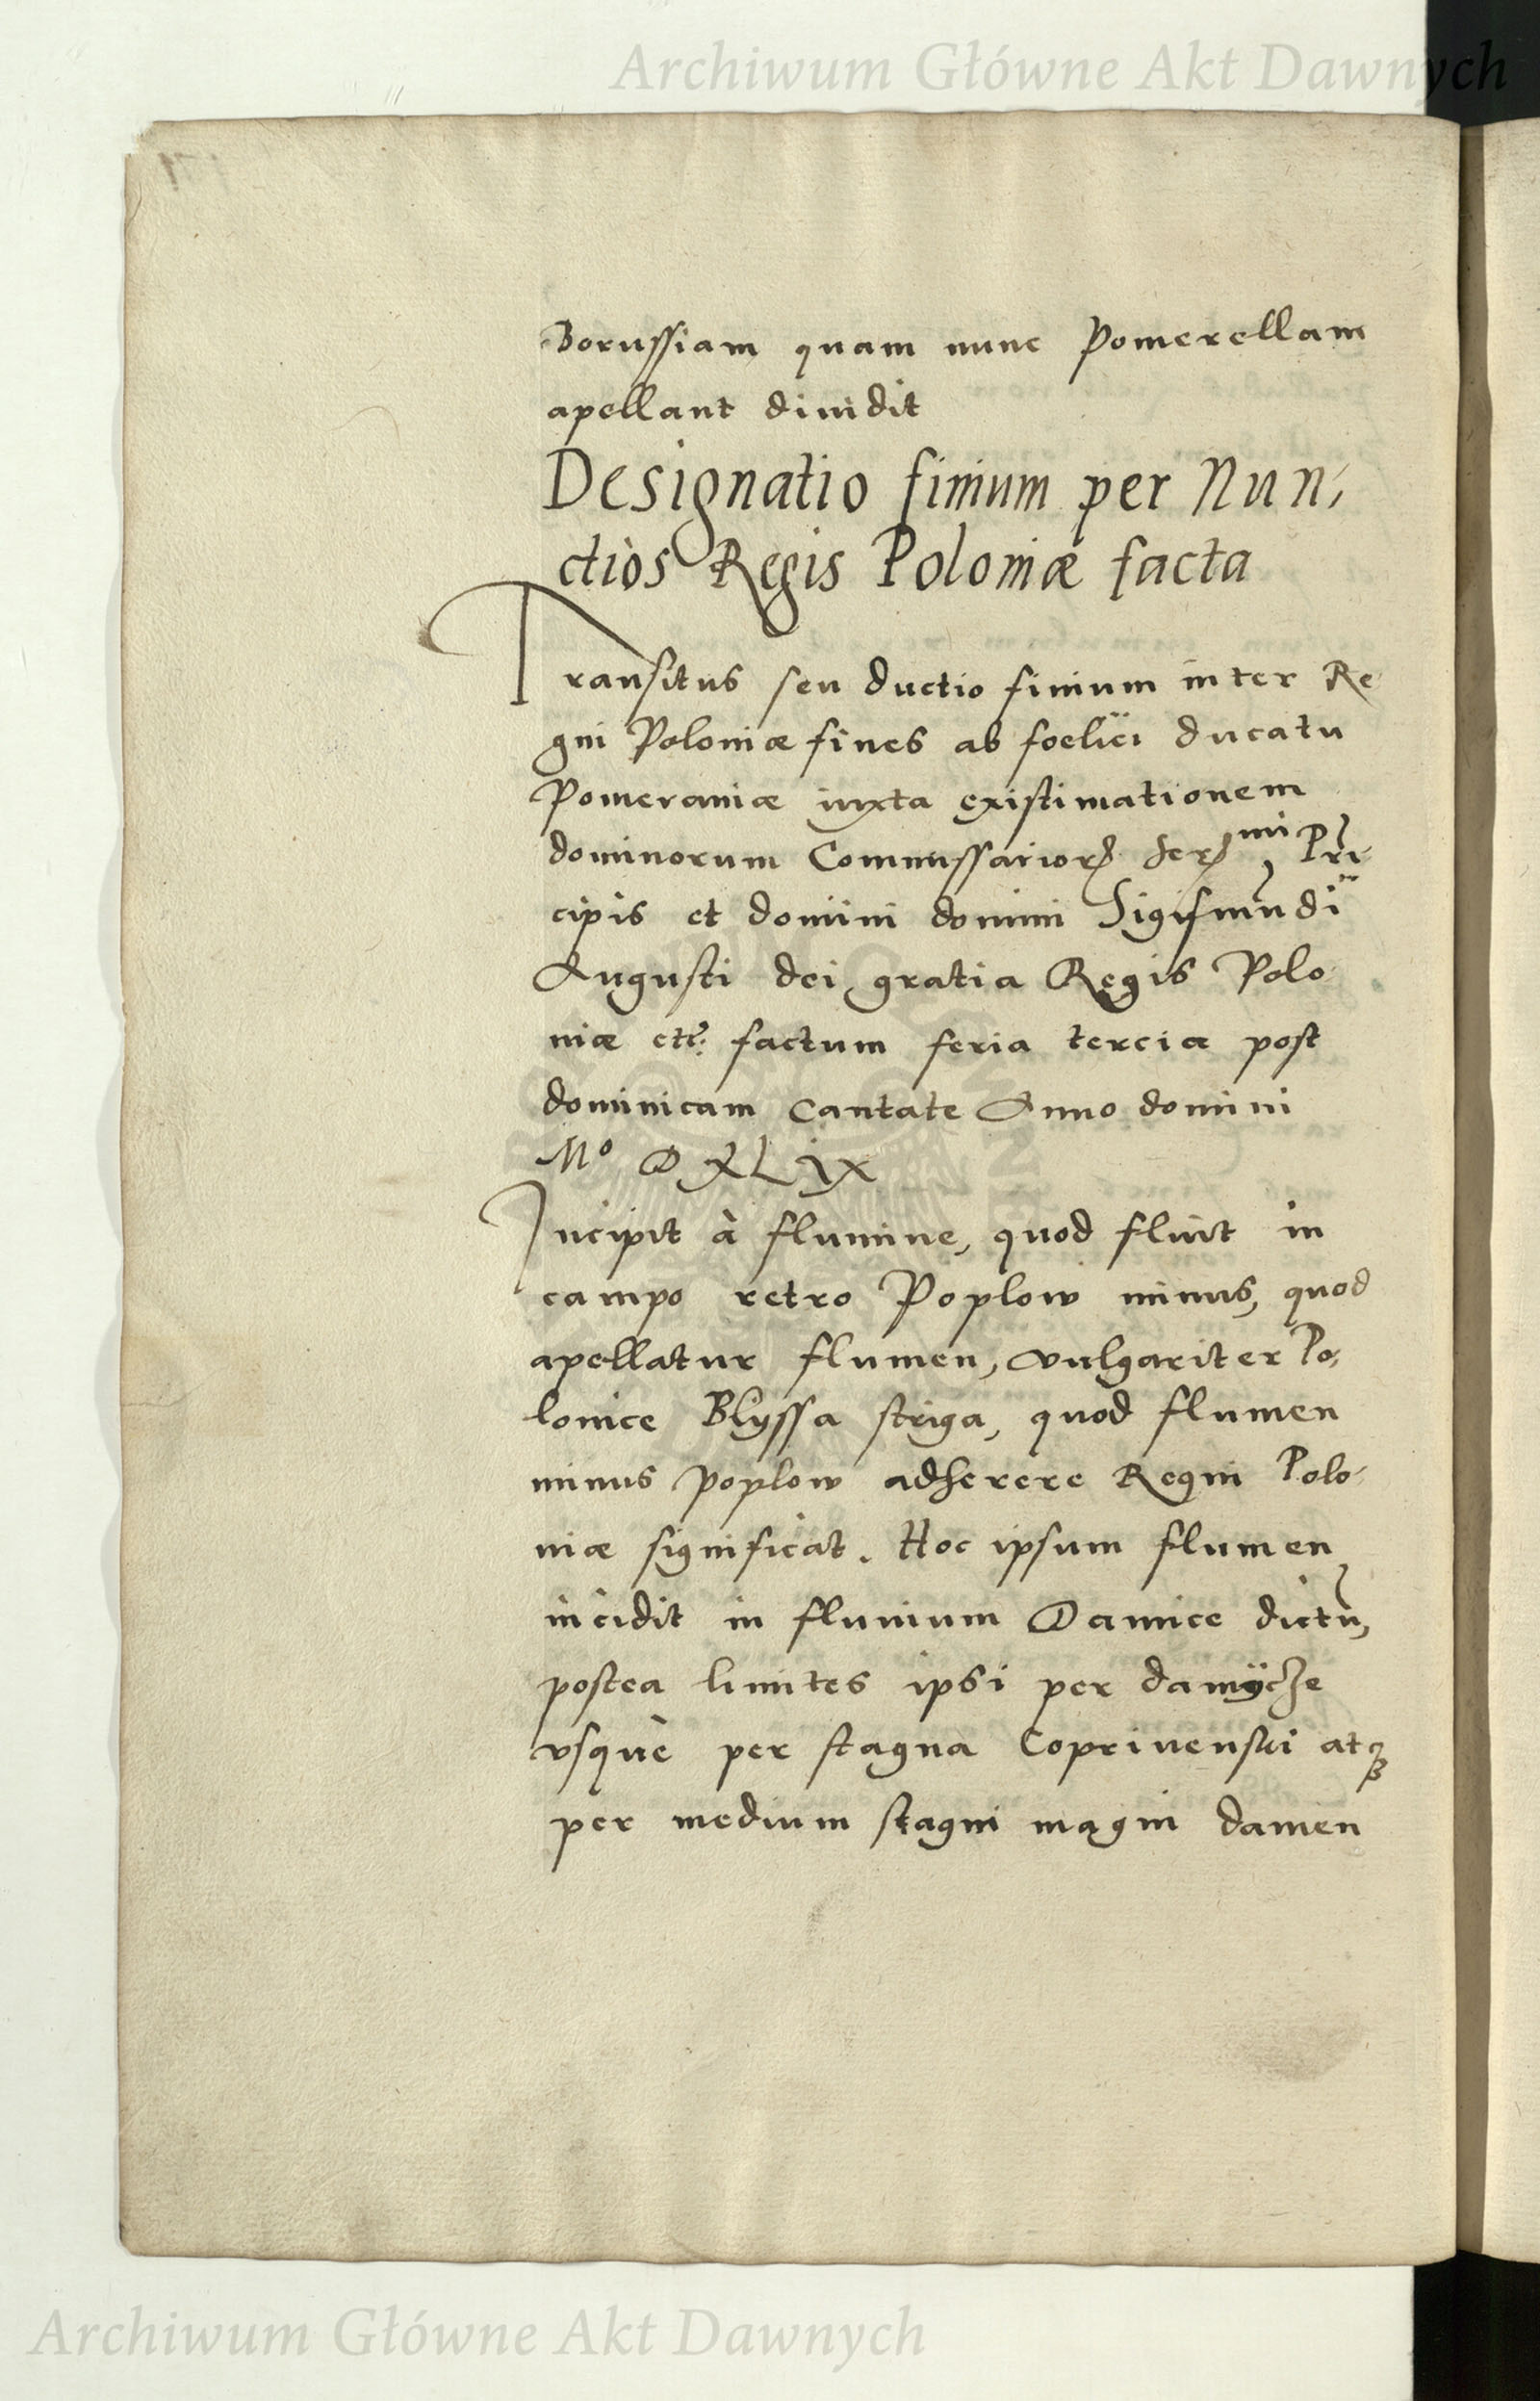 Archiwum Główne Akt Dawnych
Borussiam quam nunc Pomerellam
apellant diuidit
Designatio finium per Nun,
ctios Regis Poloniæ facta
Transitus seu ductio finium inter Re
gni Poloniæ fines ab foelici ducatu
Pomeraniæ iuxta existimationem
dominorum Commissarior. Ser.mi Pri
cipis et domini domini Sigismūdi
Augusti dei gratia Regis Polo
niæ etc: factum feria tercia post
dominicam Cantate Anno domini
Mo D XLIX
Incipit à flumine, quod fluit in
campo retro Poplow minus, quod
apellatur flumen, vulgariter Po,
lonice Blyssa striga, quod flumen
minus Poplow adherere Regni Polo
niæ significat. Hoc ipsum flumen
incidit in fluuium Damice dictū,
postea limites ipsi per damÿcze
vsquè per stagna Coprinensci atq3
per medium stagni magni damen
Archiwum Główne Akt Dawnych